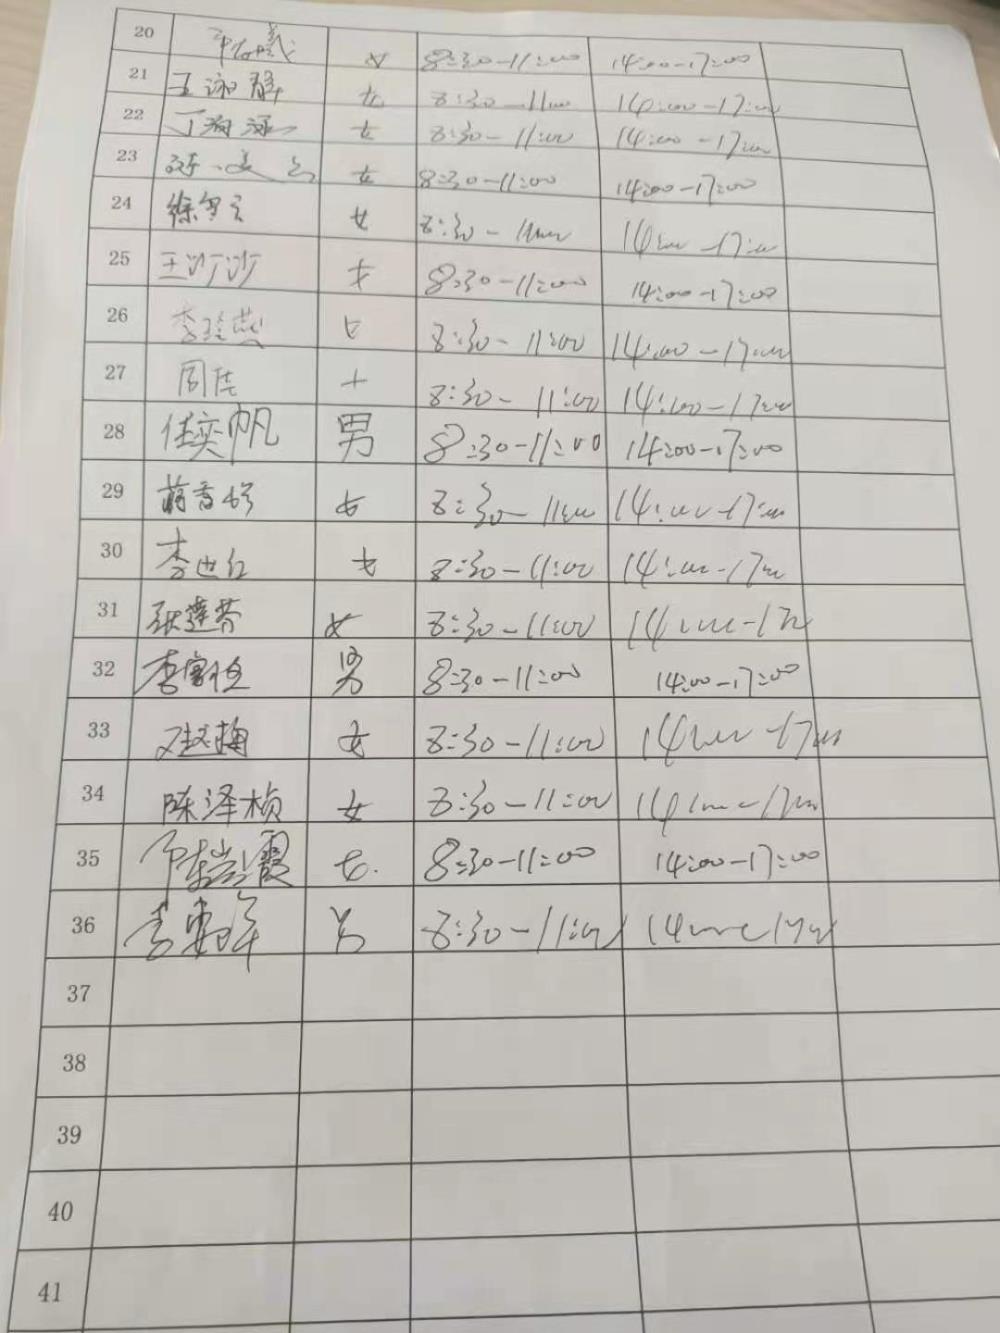 20 女 8:30-11:00 14:00-17:00
21 王咏静 女 8:30-11:00 14:00-17:00
22 丁 女 8:30-11:00 14:00-17:00
23 女 8:30-11:00 14:00-17:00
24 徐 女 8:30-11:00 14:00-17:00
25 王沙沙 女 8:30-11:00 14:00-17:00
26 李 燕 女 8:30-11:00 14:00-17:00
27 周 8:30-11:00 14:00-17:00
28 佳奕帆 男 8:30-11:00 14:00-17:00
29 女 8:30-11:00 14:00-17:00
30 李世红 女 8:30-11:00 14:00-17:00
31 张莲芬 女 8:30-11:00 14:00-17:00
32 李富 男 8:30-11:00 14:00-17:00
33 赵梅 女 8:30-11:00 14:00-17:00
34 陈泽桢 女 8:30-11:00 14:00-17:00
35 霞 女. 8:30-11:00 14:00-17:00
36 李 年 男 8:30-11:00 14:00-17:00
37
38
39
40
41